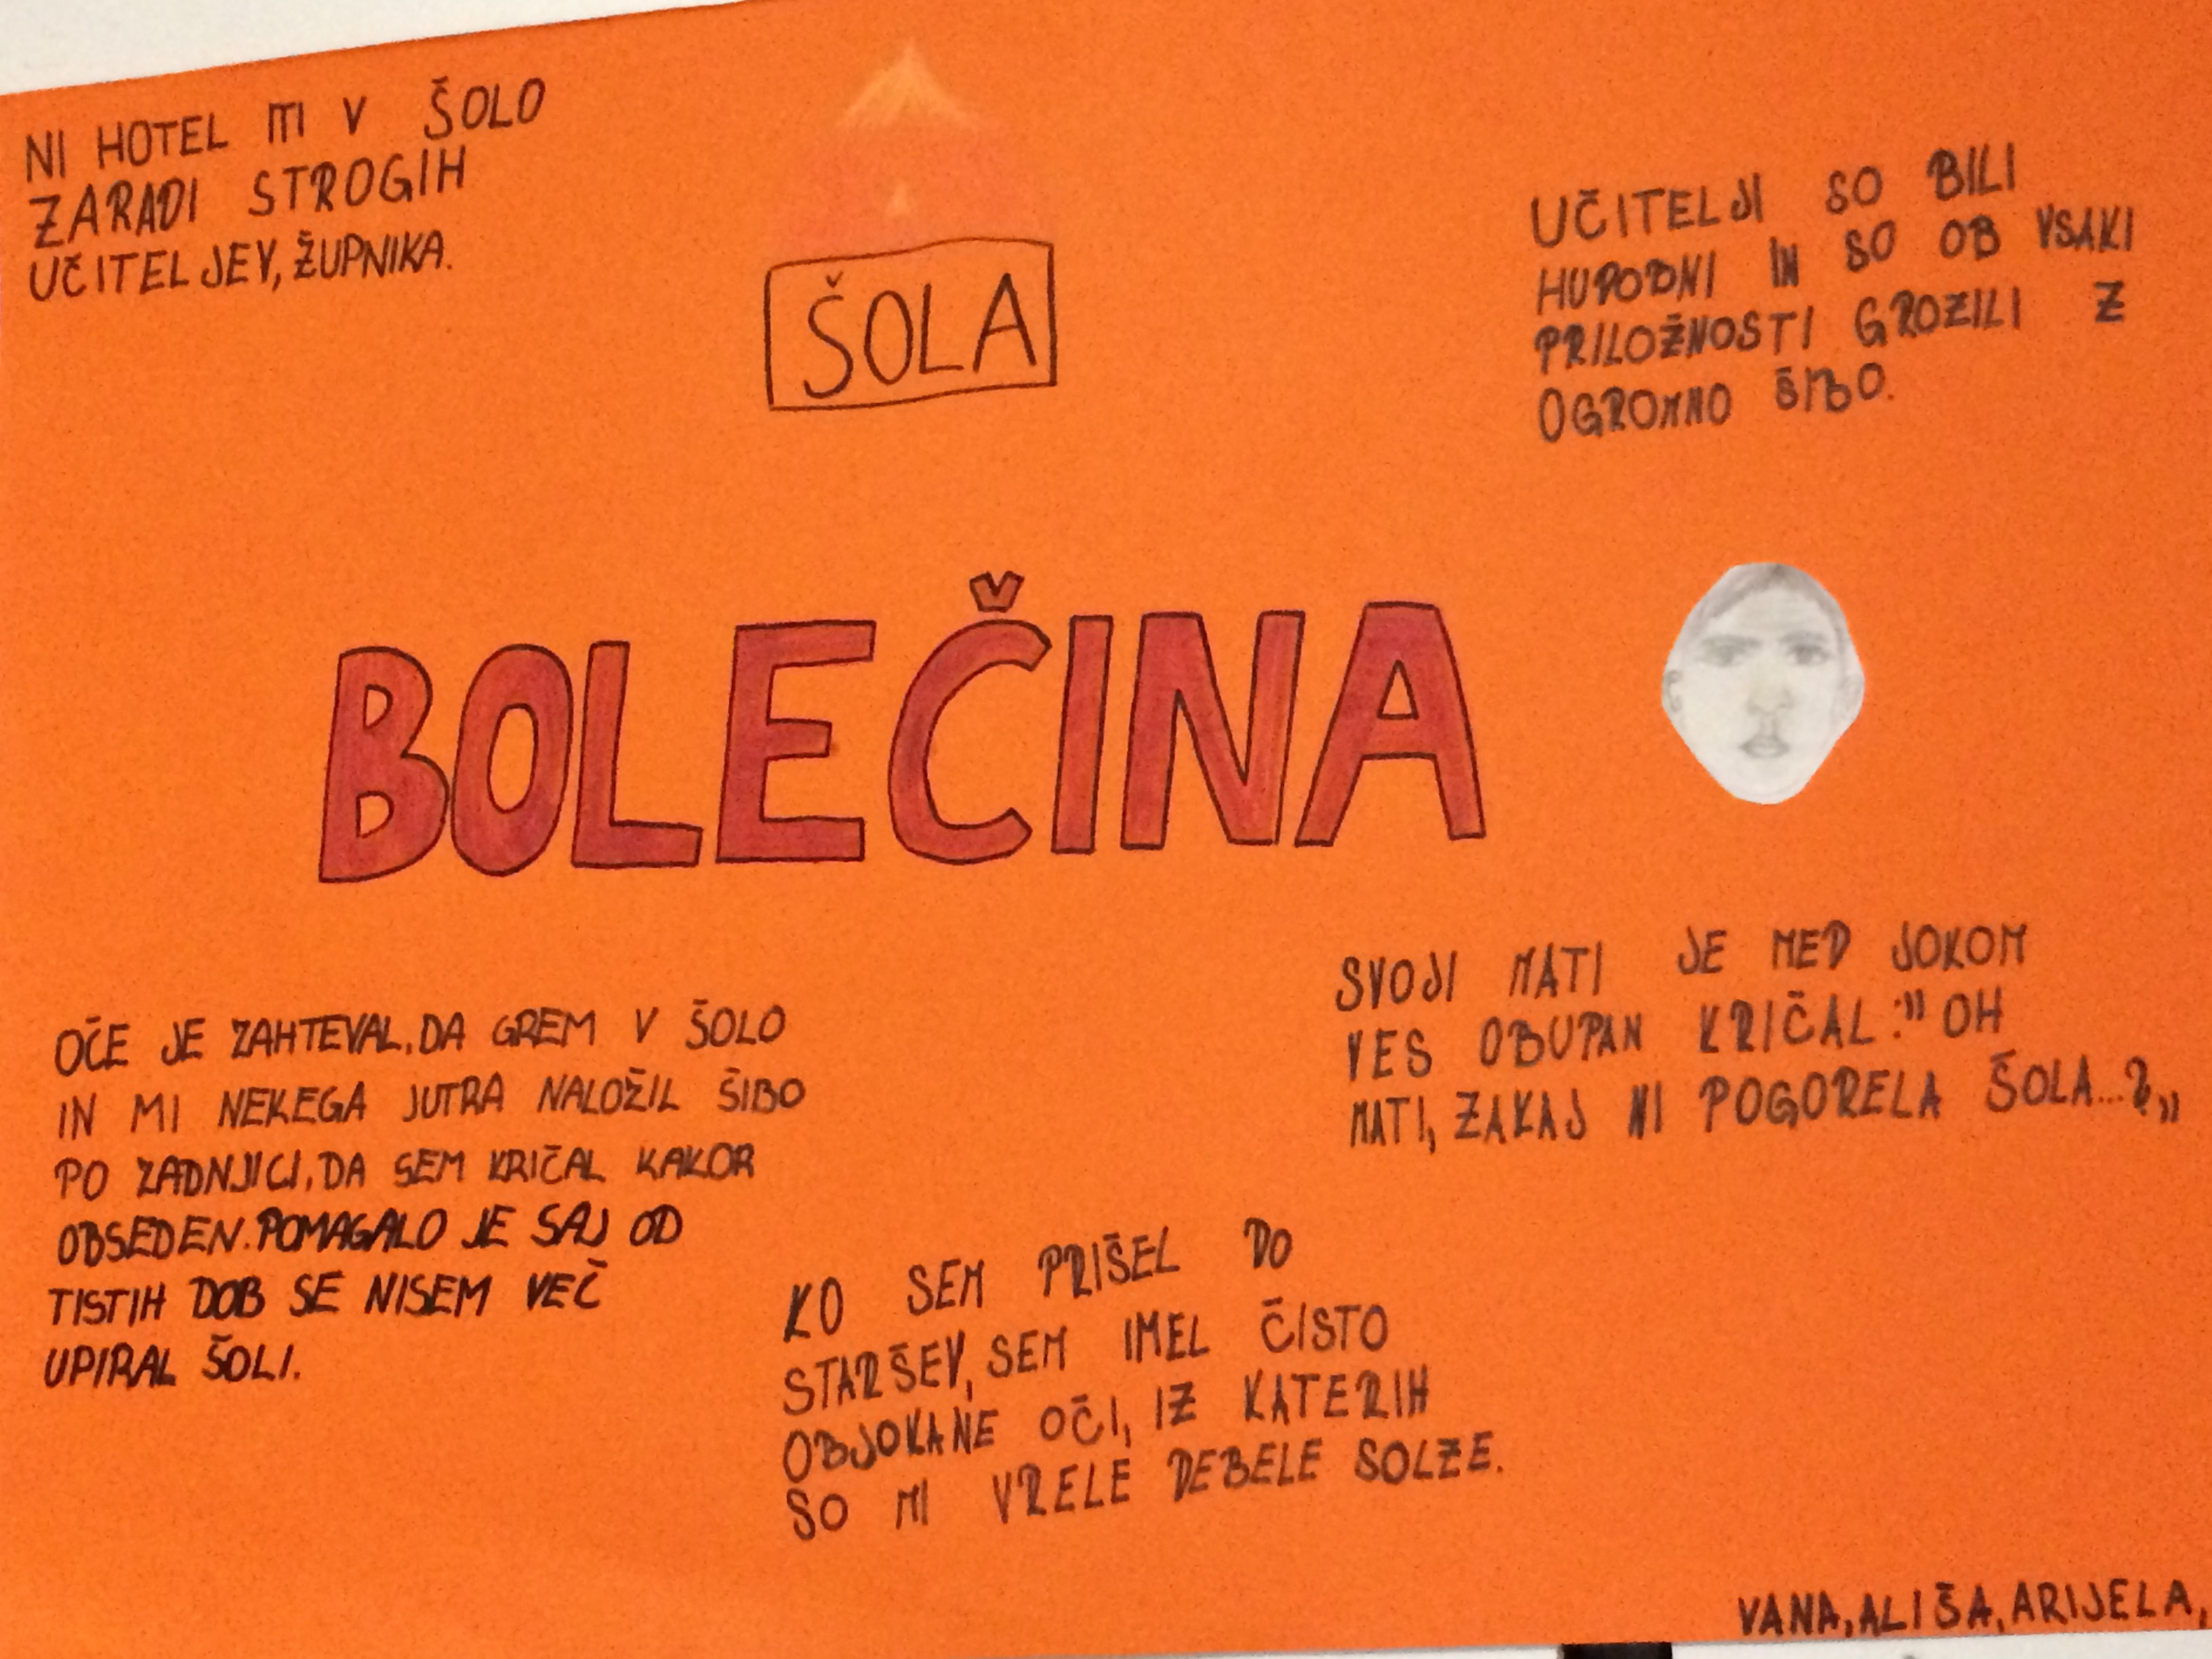 NI HOTEL ITI V ŠOLO
ZARADI STROGIH
UČITELJEV, ŽUPNIKA.
ŠOLA
UČITELJI SO BILI
HUDOBNI IN SO OB VSAKI
PRILOŽNOSTI GROZILI Z
OGROMNO ŠIBO.
BOLEČINA
OČE JE ZAHTEVAL, DA GREM V ŠOLO
IN MI NEKEGA JUTRA NALOŽIL ŠIBO
PO ZADNJICI, DA SEM KRIČAL KAKOR
OBSEDEN. POMAGALO JE SAJ OD
TISTIH DOB SE NISEM VEČ
UPIRAL ŠOLI.
SVOJI MATI JE MED JOKOM
VES OBUPAN KRIČAL:" OH
MATI, ZAKAJ NI POGORELA ŠOLA...?"
KO SEM PRIŠEL DO
STARŠEV, SEM IMEL ČISTO
OBJOKANE OČI, IZ KATERIH
SO MI VRELE DEBELE SOLZE.
VANA, ALIŠA, ARIJELA,